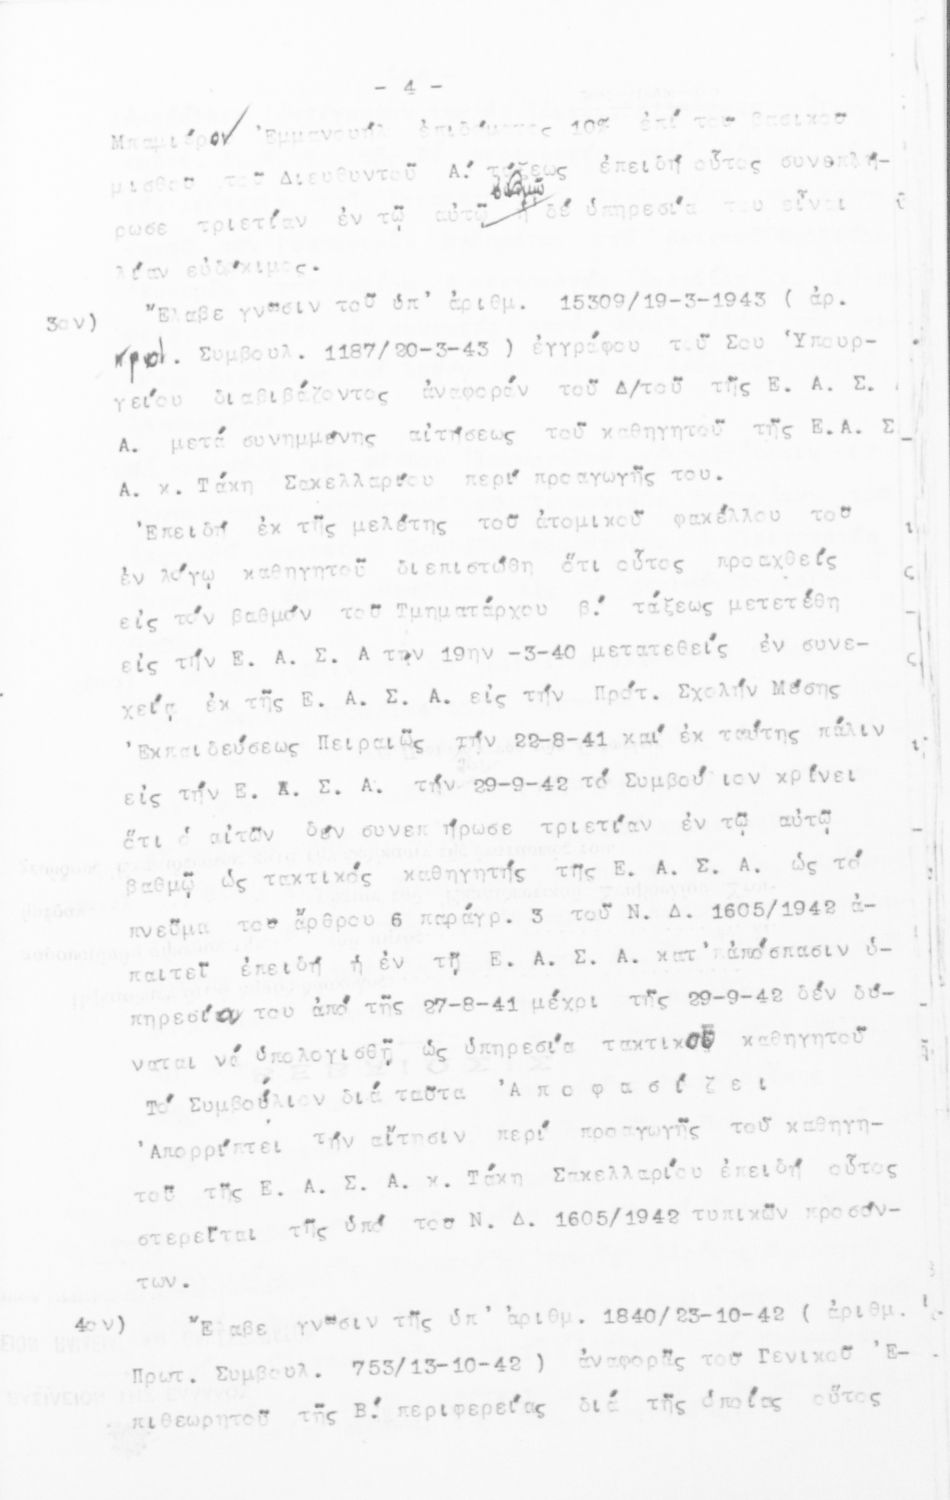 - 4 -
Μπαμιέρον Ἐμμανουήλ ἐπιδόματος 10% ἐπί τοῦ βασικοῦ
μισθοῦ τοῦ Διευθυντοῦ Α! τάξεως ἐπειδή οὗτος συνεπλή-
ρωσε τριετίαν ἐν τῷ αὐτῷ βαθμῷ ἡ δέ ὑπηρεσία του εἶναι
λίαν εὐδόκιμος.
3ον) Ἔλαβε γνῶσιν τοῦ ὑπ' ἀριθμ. 15309/19-3-1943 ( ἀρ.
πρωτ. Συμβουλ. 1187/20-3-43 ) ἐγγράφου τοῦ Σου Ὑπουρ-
γείου διαβιβάζοντος ἀναφοράν τοῦ Δ/τοῦ τῆς Ε. Α. Σ.
Α. μετά συνημμένης αἰτήσεως τοῦ καθηγητοῦ τῆς Ε.Α. Σ
Α. κ. Τάκη Σακελλαρίου περί προαγωγῆς του.
Ἐπειδή ἐκ τῆς μελέτης τοῦ ἀτομικοῦ φακέλλου τοῦ
ἐν λόγῳ καθηγητοῦ διεπιστώθη ὅτι οὗτος προαχθείς
εἰς τόν βαθμόν τοῦ Τμηματάρχου β! τάξεως μετετέθη
εἰς τήν Ε. Α. Σ. Α την 19ην -3-40 μετατεθείς ἐν συνε-
χείᾳ ἐκ τῆς Ε. Α. Σ. Α. εἰς τήν Πρότ. Σχολήν Μέσης
Ἐκπαιδεύσεως Πειραιῶς τήν 22-8-41 καί ἐκ ταύτης πάλιν
εἰς τήν Ε. Α. Σ. Α. τήν 29-9-42 τό Συμβού ιον κρίνει
ὅτι ὁ αἰτῶν δέν συνεπ ήρωσε τριετίαν ἐν τῷ αὐτῷ
βαθμῷ ὡς τακτικός καθηγητής τῆς Ε. Α. Σ. Α. ὡς τό
πνεῦμα τοῦ ἄρθρου 6 παράγρ. 3 τοῦ Ν. Δ. 1605/1942 ἀ-
παιτεῖ ἐπειδή ἡ ἐν τῇ Ε. Α. Σ. Α. κατ' ἀπόσπασιν ὑ-
πηρεσία του ἀπό τῆς 27-8-41 μέχρι τῆς 29-9-42 δέν δύ-
ναται νά ὑπολογισθῇ ὡς ὑπηρεσία τακτικοῦ καθηγητοῦ
Τό Συμβούλιον διά ταῦτα Ἀ π ο φ α σ ί ζ ε ι
Ἀπορρίπτει τήν αἴτησιν περί προαγωγῆς τοῦ καθηγη-
τοῦ τῆς Ε. Α. Σ. Α. κ. Τάκη Σακελλαρίου ἐπειδή οὗτος
στερεῖται τῆς ὑπό τοῦ Ν. Δ. 1605/1942 τυπικῶν προσόν-
των.
4ον) Ἔ αβε γνῶσιν τῆς ὑπ' ἀριθμ. 1840/23-10-42 ( ἀριθμ.
Πρωτ. Συμβουλ. 753/13-10-42 ) ἀναφορᾶς τοῦ Γενικοῦ Ἐ-
πιθεωρητοῦ τῆς Β! περιφερείας διά τῆς ὁποίας οὗτος